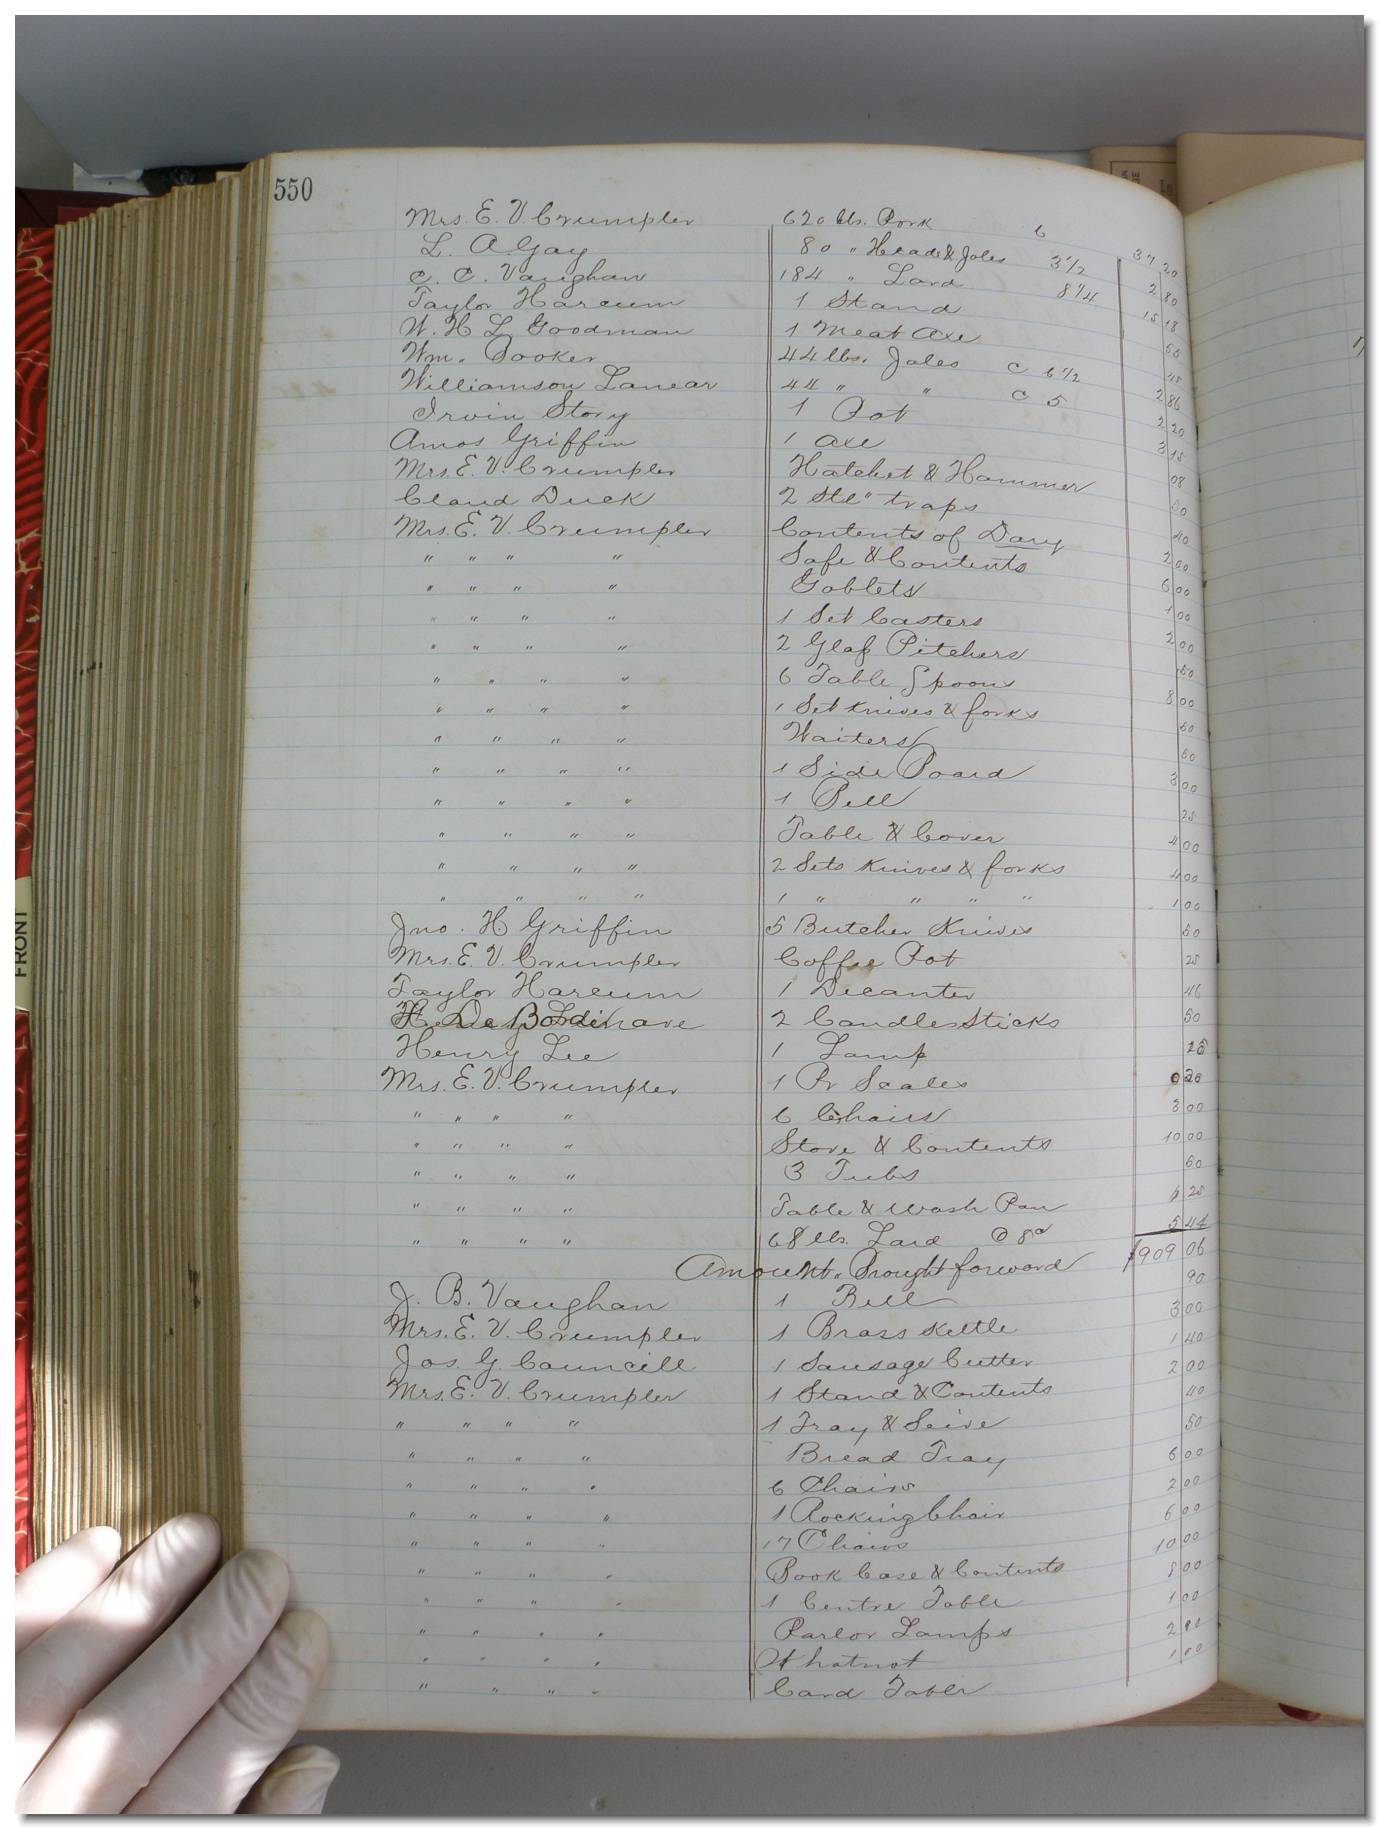 550
Mrs. E. V. Crumpler 620 lbs. Pork 6 37 20
L. A. Gay 80 " Heads & Joles 3 1/2 2 80
C. C. Vaughan 184 " Lard 8 1/4 15 18
Taylor Harcum 1 Stand 50
W. H. L. Goodman 1 Meat Axe 45
Wm. Booker 44 lbs. Joles C 6 1/2 2 86
Williamson Lanear 44 " " C 5 2 20
Irvin Story 1 Pot 3 15
Amos Griffin 1 Axe 08
Mrs. E. V. Crumpler Hatchet & Hammer
Claud Duck 2 Stl" traps 40
Mrs. E. V. Crumpler Contents of Dary 2 00
" " " " Safe & Contents 6 00
" " " " Goblets 1 00
" " " " 1 Set Casters 2 00
" " " " 2 Glass Pitchers 50
" " " " 6 Table Spoons 8 00
" " " " 1 Set Knives & forks 50
" " " " Waiters 50
" " " " 1 Side Board 3 00
" " " " 1 Bell 25
" " " " Table & Cover 4 00
" " " " 2 Sets Knives & forks 4 00
" " " " 1 " " " " 1 00
Jno. H Griffin 5 Butcher Knives 50
Mrs. E. V. Crumpler Coffee Pot 25
Taylor Harcum 1 Decanter
2 Candle Sticks 50
Henry Lee 1 Lamp
Mrs. E. V. Crumpler 1 Pr Scales
" " " " 6 Chairs 3 00
" " " " Stove & Contents 10 00
" " " " 3 Tubs 60
" " " " Table & Wash Pan 25
" " " " 68 lbs. Lard @ 8c 5 44
Amount Brought forward $909 06
J. B. Vaughan 1 Bell 90
Mrs. E. V. Crumpler 1 Brass Kettle 3 00
Jos. G. Councill 1 Sausage Cutter 1 40
Mrs. E. V. Crumpler 1 Stand & Contents 2 00
" " " " 1 Tray & Seive 40
" " " " Bread Tray 50
" " " " 6 Chairs 6 00
" " " " 1 Rocking Chair 2 00
" " " " 17 Chairs 6 00
" " " " Book Case & Contents 10 00
" " " " 1 Centre Table 8 00
" " " " Parlor Lamps 1 00
" " " " Whatnot 2 00
" " " " Card Table 1 00
FRONT